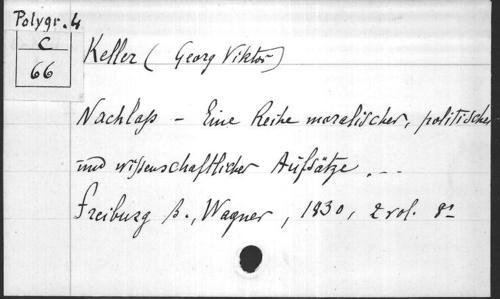 Polygr. 4
C
66
Keller (Georg Viktor)
Nachlaß - Eine Reihe moralischer, politischer
und wissenschaftlicher Aufsätze ...
Freiburg B., Wagner, 1830, 2 vol. 8º